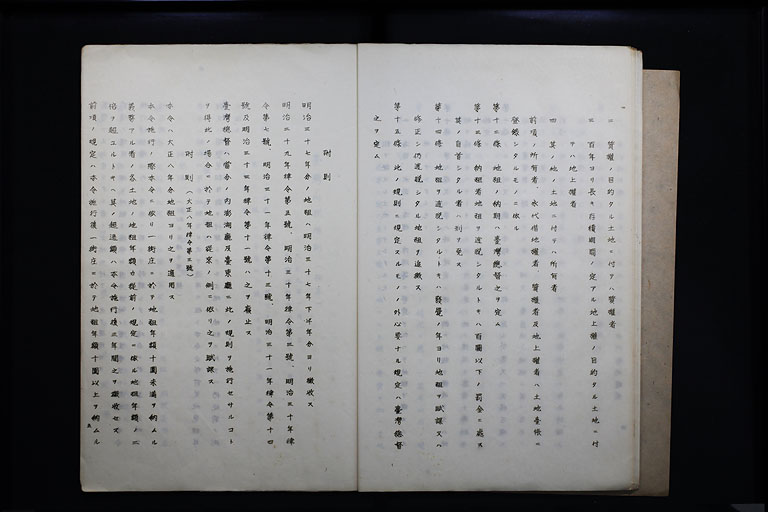 二 質權ノ目的タル土地ニ付テハ質權者
三 百年ヨリ長キ存續期間ノ定アル地上權ノ目的タル土地ニ付
テハ地上權者
四 其ノ他ノ土地ニ付テハ所有者
前項ノ所有者、永代借地權者、質權者及地上權者ハ土地臺帳ニ
登錄シタルモノニ依ル
第十二條 地租ノ納期ハ臺灣總督之ヲ定ム
第十三條 納租者地租ヲ逋脫シタルトキハ百圓以下ノ罰金ニ處ス
其ノ自首シタル者ハ刑ヲ免ス
第十四條 地租ヲ逋脫シタルトキハ發覺ノ年ヨリ地租ヲ賦課又ハ
修正シ仍逋脫シタル地租ヲ追徵ス
第十五條 此ノ規則ニ規定スルモノノ外必要ナル規定ハ臺灣總督
之ヲ定ム
附則
明治三十七年分ノ地租ハ明治三十七年下半年分ヨリ徵收ス
明治二十九年律令第五號、明治三十年律令第三號、明治三十年律
令第七號、明治三十一年律令第十三號、明治三十一年律令第十四
號及明治三十三年律令第十一號ハ之ヲ廢止ス
臺灣總督ハ當分ノ內澎湖廳及臺東廳ニ此ノ規則ヲ施行セサルコト
ヲ得此ノ場合ニ於テ地租ハ從來ノ例ニ依リ之ヲ賦課ス
附則(大正八年律令第三號)
本令ハ大正八年分地租ヨリ之ヲ適用ス
本令施行ノ際本令ニ依リ一街庄ニ於テ地租年額十圓未滿ヲ納ムル
義務アル者ノ各土地ノ地租年額カ從前ノ規定ニ依ル地租年額ノ二
倍ヲ超ユルトキハ其ノ超過額ハ本令施行後三年間之ヲ徵收セス
前項ノ規定ハ本令施行後一街庄ニ於テ地租年額十圓以上ヲ納ムル